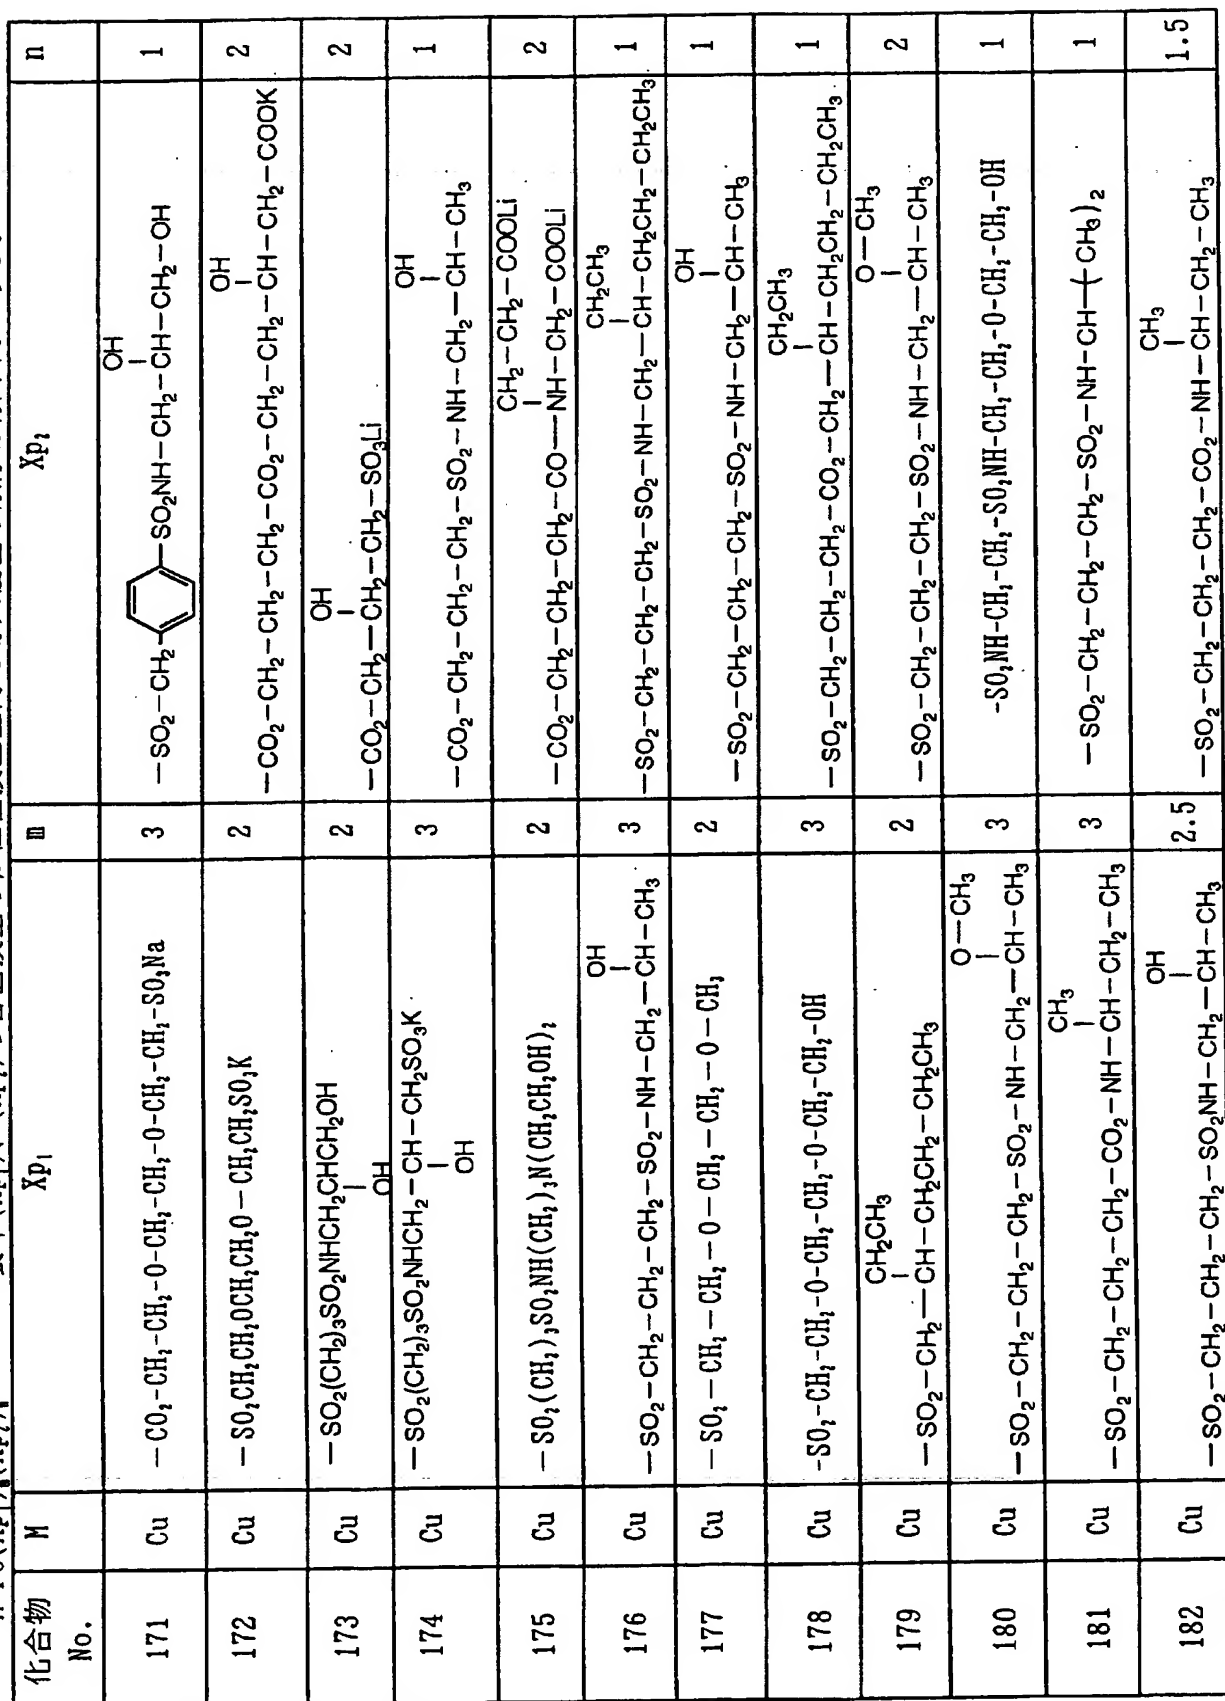 化合物 No. M Xp₁ m Xp₂ n
171 Cu —CO₂-CH₂-CH₂-O-CH₂-CH₂-O-CH₂-CH₂-SO₃Na 3 —SO₂—CH₂— —SO₂NH—CH₂—CH(OH)—CH₂—OH 1
172 Cu —SO₂CH₂CH₂OCH₂CH₂O—CH₂CH₂SO₃K 2 —CO₂—CH₂—CH₂—CH₂—CO₂—CH₂—CH₂—CH₂—CH(OH)—CH₂—COOK 2
173 Cu —SO₂(CH₂)₃SO₂NHCH₂CH(OH)CH₂OH 2 —CO₂—CH₂—CH(OH)—CH₂—CH₂—SO₃Li 2
174 Cu —SO₂(CH₂)₃SO₂NHCH₂—CH(OH)—CH₂SO₃K 3 —CO₂—CH₂—CH₂—CH₂—SO₂—NH—CH₂—CH(OH)—CH₃ 1
175 Cu —SO₂(CH₂)₃SO₂NH(CH₂)₃N(CH₂CH₂OH)₂ 2 —CO₂—CH₂—CH₂—CH₂—CO—NH(CH₂—CH₂—COOLi)—CH₂—COOLi 2
176 Cu —SO₂—CH₂—CH₂—CH₂—SO₂—NH—CH₂—CH(OH)—CH₃ 3 —SO₂—CH₂—CH₂—CH₂—SO₂—NH—CH₂—CH(CH₂CH₃)—CH₂CH₂—CH₂CH₃ 1
177 Cu —SO₂—CH₂—CH₂—O—CH₂—CH₂—O—CH₃ 2 —SO₂—CH₂—CH₂—CH₂—SO₂—NH—CH₂—CH(OH)—CH₃ 1
178 Cu -SO₂-CH₂-CH₂-O-CH₂-CH₂-O-CH₂-CH₂-OH 3 —SO₂—CH₂—CH₂—CH₂—CO₂—CH₂—CH(CH₂CH₃)—CH₂CH₂—CH₂CH₃ 1
179 Cu —SO₂—CH₂—CH(CH₂CH₃)—CH₂CH₂—CH₂CH₃ 2 —SO₂—CH₂—CH₂—CH₂—SO₂—NH—CH₂—CH(O—CH₃)—CH₃ 2
180 Cu —SO₂—CH₂—CH₂—CH₂—SO₂—NH—CH₂—CH(O—CH₃)—CH₃ 3 -SO₂NH-CH₂-CH₂-SO₂NH-CH₂-CH₂-O-CH₂-CH₂-OH 1
181 Cu —SO₂—CH₂—CH₂—CH₂—CO₂—NH—CH(CH₃)—CH₂—CH₃ 3 —SO₂—CH₂—CH₂—CH₂—SO₂—NH—CH—(CH₃)₂ 1
182 Cu —SO₂—CH₂—CH₂—CH₂—SO₂NH—CH₂—CH(OH)—CH₃ 2.5 —SO₂—CH₂—CH₂—CH₂—CO₂—NH—CH(CH₃)—CH₂—CH₃ 1.5